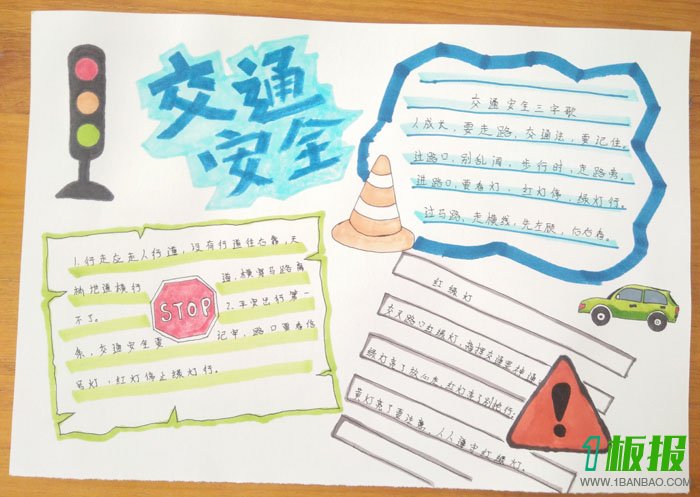 交通
安全
交通安全三字歌
人成长，要走路，交通法，要记住。
过路口，别乱闯，步行时，走路离。
进路口，要看灯，红灯停，绿灯行。
过马路，走横线，先左顾，后右看。
1.行走应走人行道，没有行道往右靠，天
桥地道横行 道，横穿马路离
不了。 2.平安出行第一
条，交通安全要 记牢，路口要看信
号灯，红灯停止绿灯行。
STOP
红绿灯
交叉路口红绿灯，指挥交通要神通
绿灯亮了放心走，红灯亮了别抢行；
黄灯亮了要注意，人人遵守红绿灯。
1板报
WWW.1BANBAO.COM